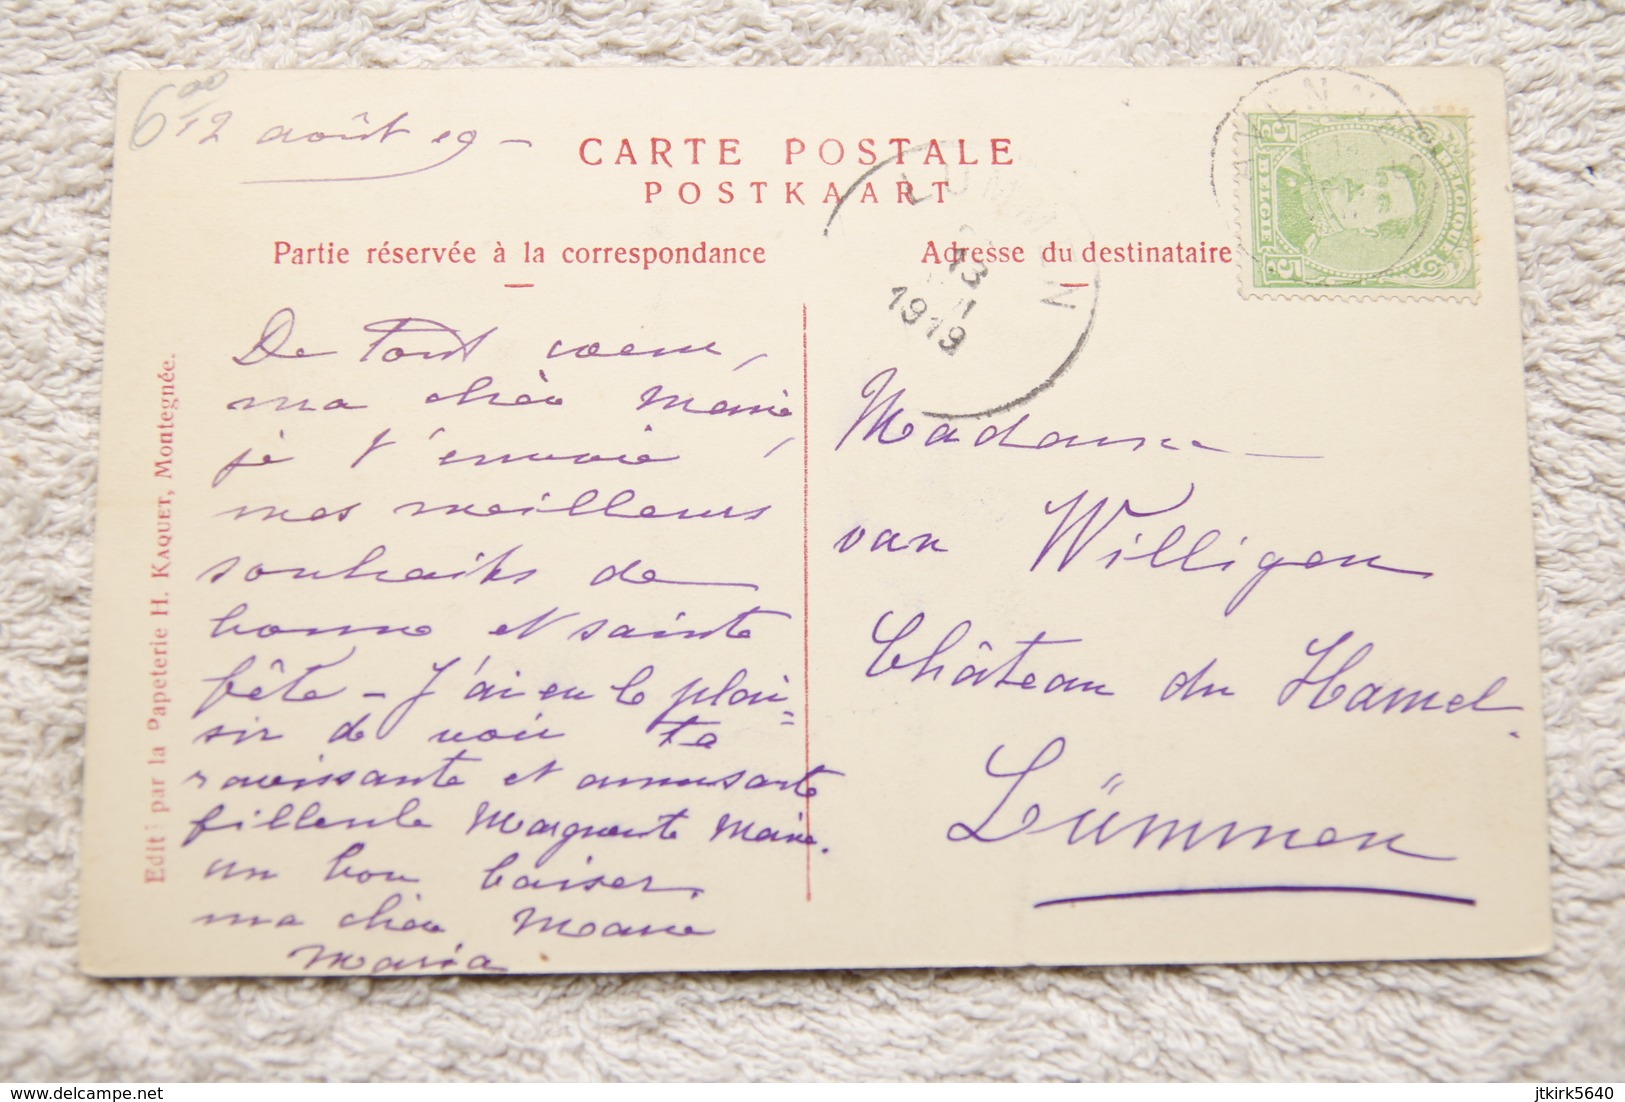 6.00
12 août 19 -
CARTE POSTALE
POSTKAART
Partie réservée à la correspondance
Adresse du destinataire
Edité par la Papeterie H. KAQUET, Montegnée.
De tout coeur,
ma chère Marie,
je t'envoie
mes meilleurs
souhaits de
bonne et sainte
fête - J'ai eu le plai=
sir de voir ta
ravissante et amusante
filleule Marguerite Marie.
un bon baiser.
ma chère Marie
Maria
Madame
van Willigen
Château du Hamel.
Lümmen
LUMMEN
13
1919
5c 5c
BELGIQUE
BELGIE
delcampe.net
jtkirk5640